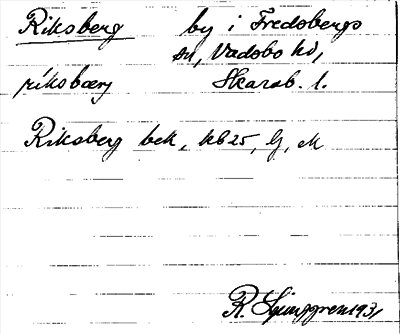 Riksberg by i Fredsbergs
sn, Vadsbo hd,
ríksbærj Skarab. l.
Riksberg bek, kb25, G, M
R. Ljunggren 1931